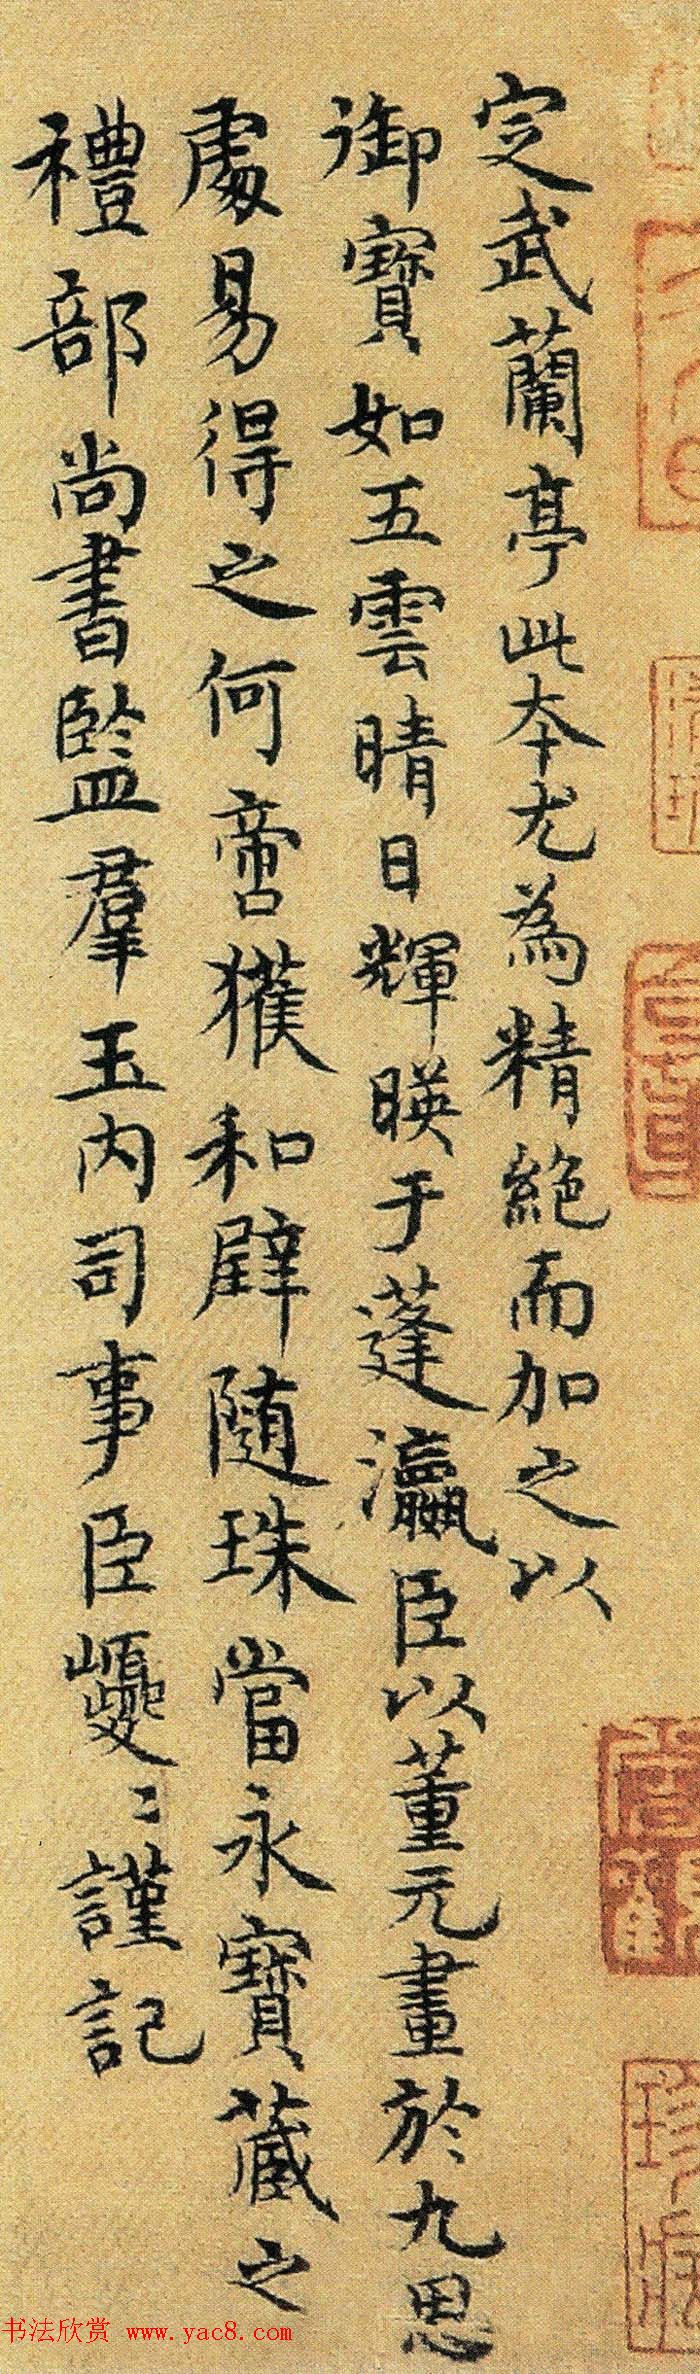 定武蘭亭此本尤為精絕而加之以
御寶如五雲晴日輝暎于蓬瀛臣以董元畫於九思
處易得之何啻獲和璧随珠當永寶藏之
禮部尚書監羣玉内司事臣巙〻謹記
书法欣赏 www.yac8.com